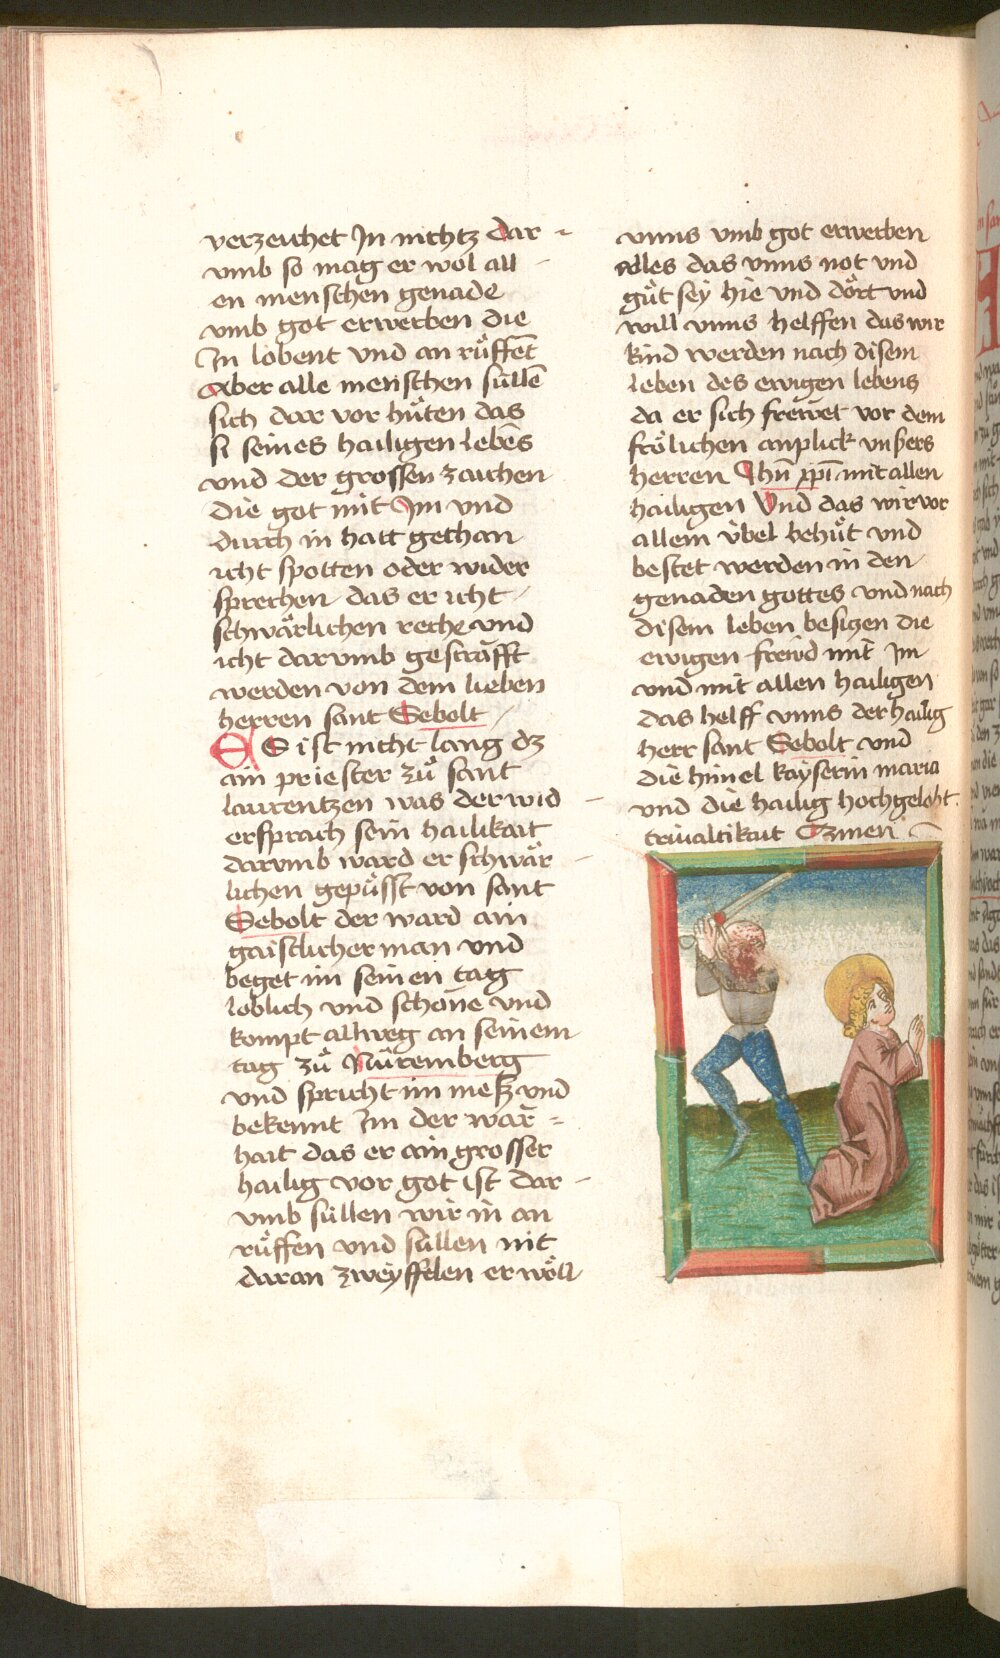 verzeuhet Jn nichtz dar -
vmb so mag er wol all -
en menschen genade
vmb got erwerben die
Jn lobent vnd an růffent̄
Aber alle menschen süllē
sich dar vor hüten das
si seines hailigen lebēs
vnd der grossen zaichen
die got mit Jm vnd
durch in hatt gethan
icht spotten oder wider
sprechen das er icht
schwärlichen reche vnd
icht darvmb gesträfft
werden von dem lieben
herren sant Sebolt
ES ist nicht lang dz
ain priester zů sant
laurentzen was der wid -
ersprach sein hailikait
darvmb ward er schwär -
lichen gepüsst von sant
Sebolt der ward ain
gaistlicher man vnd
beget im seinen tag
loblich vnd schöne vnd
kompt allweg an seinem
tag zů Nüremberg
vnd spricht im meß vnd
bekennt Jm der war =
hait das er ain grosser
hailig vor got ist dar -
vmb süllen wir in an
rüffen vnd süllen nit
daran zweyfflen er wöll
vnns vmb got erwerben
alles das vnns not vnd
gůt sey hie vnd dört vnd
will vnns helffen das wir
kind werden nach disem
leben des ewigen lebens
da er sich frewet vor dem
frölichen anplick vnsers
herren Jhū xp̄i mit allen
hailigen Vnd das wir vor
allem übel behüt vnd
bestet werden in den
genaden gottes vnd nach
disem leben besizen die
ewigen frewd mit Jm
vnd mit allen hailigen
das helff vnns der hailig
herr sant Sebolt vnd
die himel kayserin maria
vnd die hailig hochgelobt
triualtikait Amen